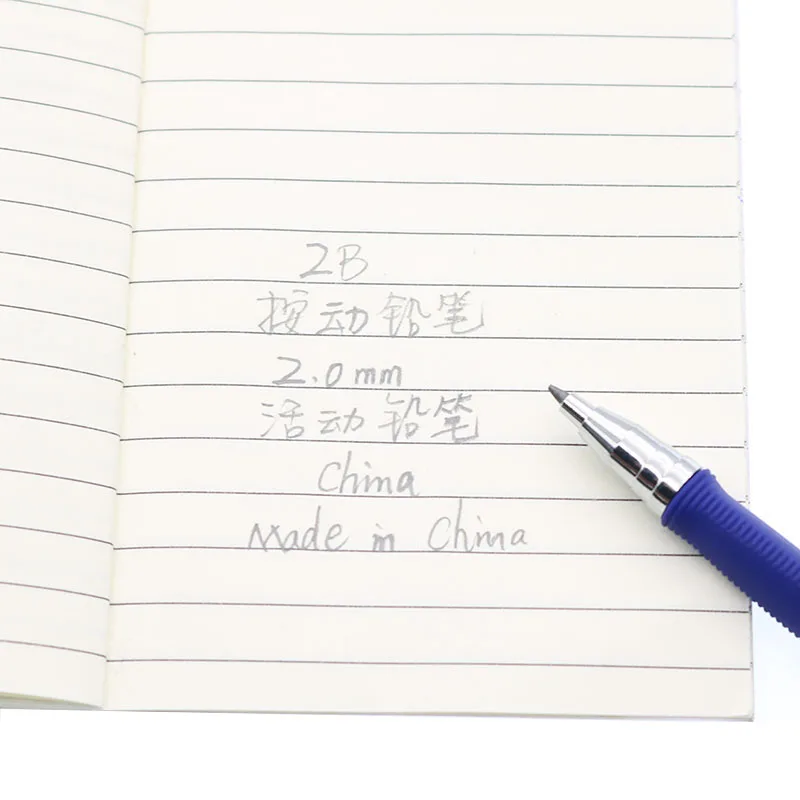 2B
按动铅笔
2.0mm
活动铅笔
China
Made in China